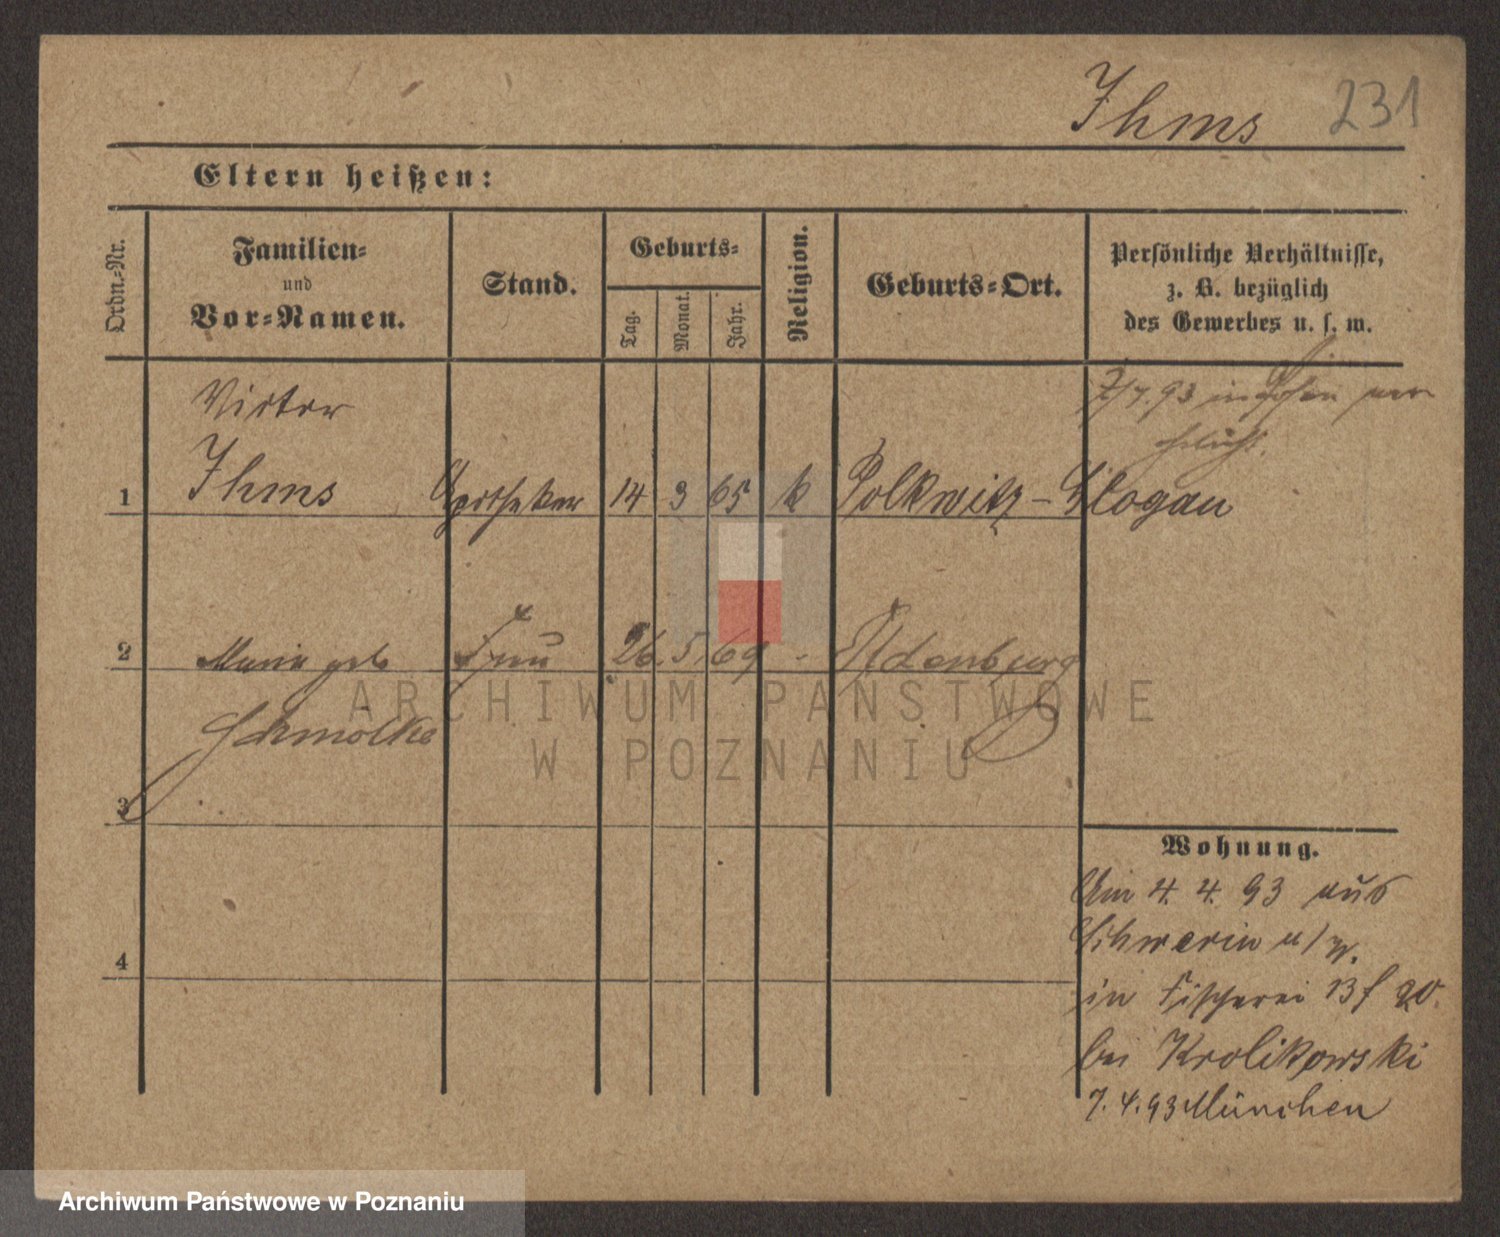 Ihms 231
Eltern heißen:
Ordn.-Nr.
Familien-
und
Vor-Namen.
Stand.
Geburts-
Tag.
Monat.
Jahr.
Religion.
Geburts-Ort.
Persönliche Verhältnisse,
z. B. bezüglich
des Gewerbes u. s. w.
7/4 93 in Posen ver
ehelicht.
Victor
1 Ihms Apotheker 14 3 65 k Polkwitz - Glogau
2 Maria geb Frau 26. 5. 69 - Oldenburg
Schmolke
3
4
Wohnung.
Am 4. 4. 93 aus
Schwerin a/W.
in Fischerei 13 f 20.
bei Krolikowski
7. 4. 93 München
ARCHIWUM PAŃSTWOWE
W POZNANIU
Archiwum Państwowe w Poznaniu